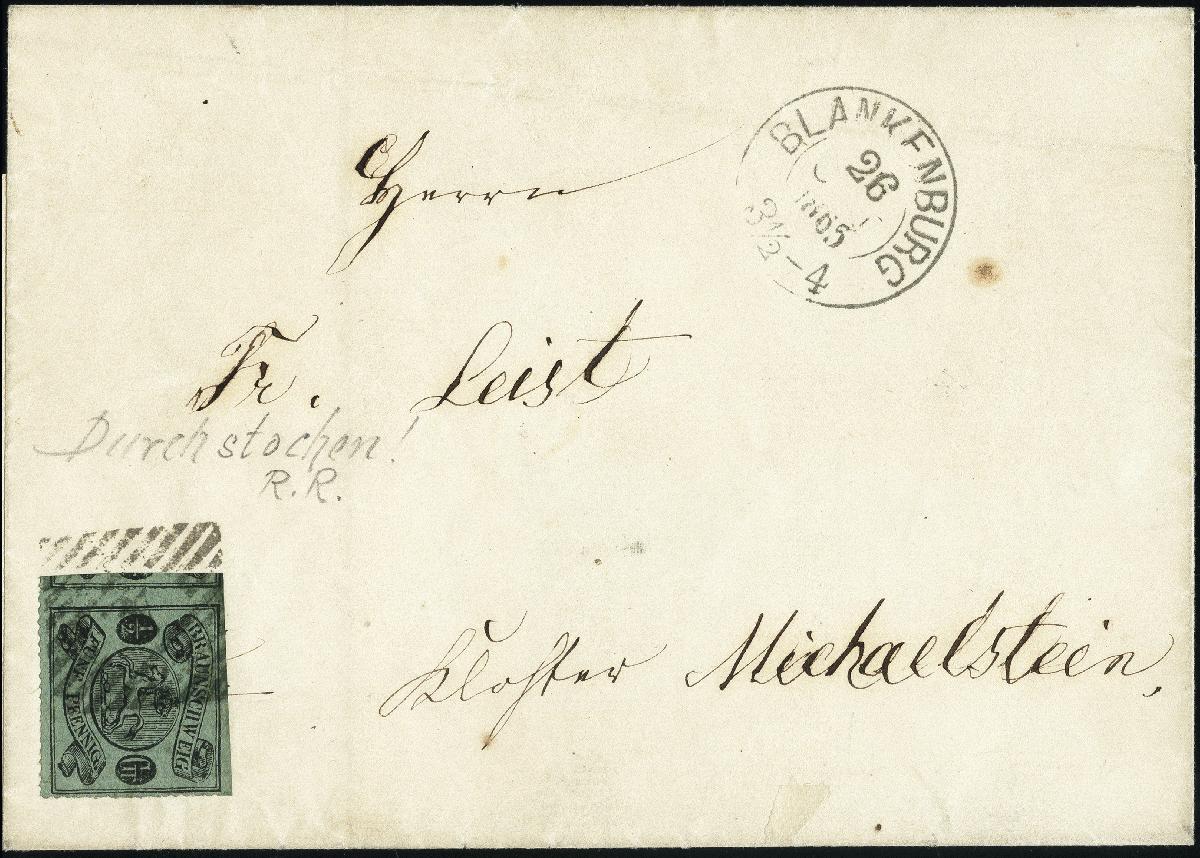 BLANKENBURG
26
1865
3½-4
Herrn
Fr. Leist
Durchstochen!
R.R.
Kloster Michaelstein,
½
BRAUNSCHWEIG
FÜNF PFENNIG